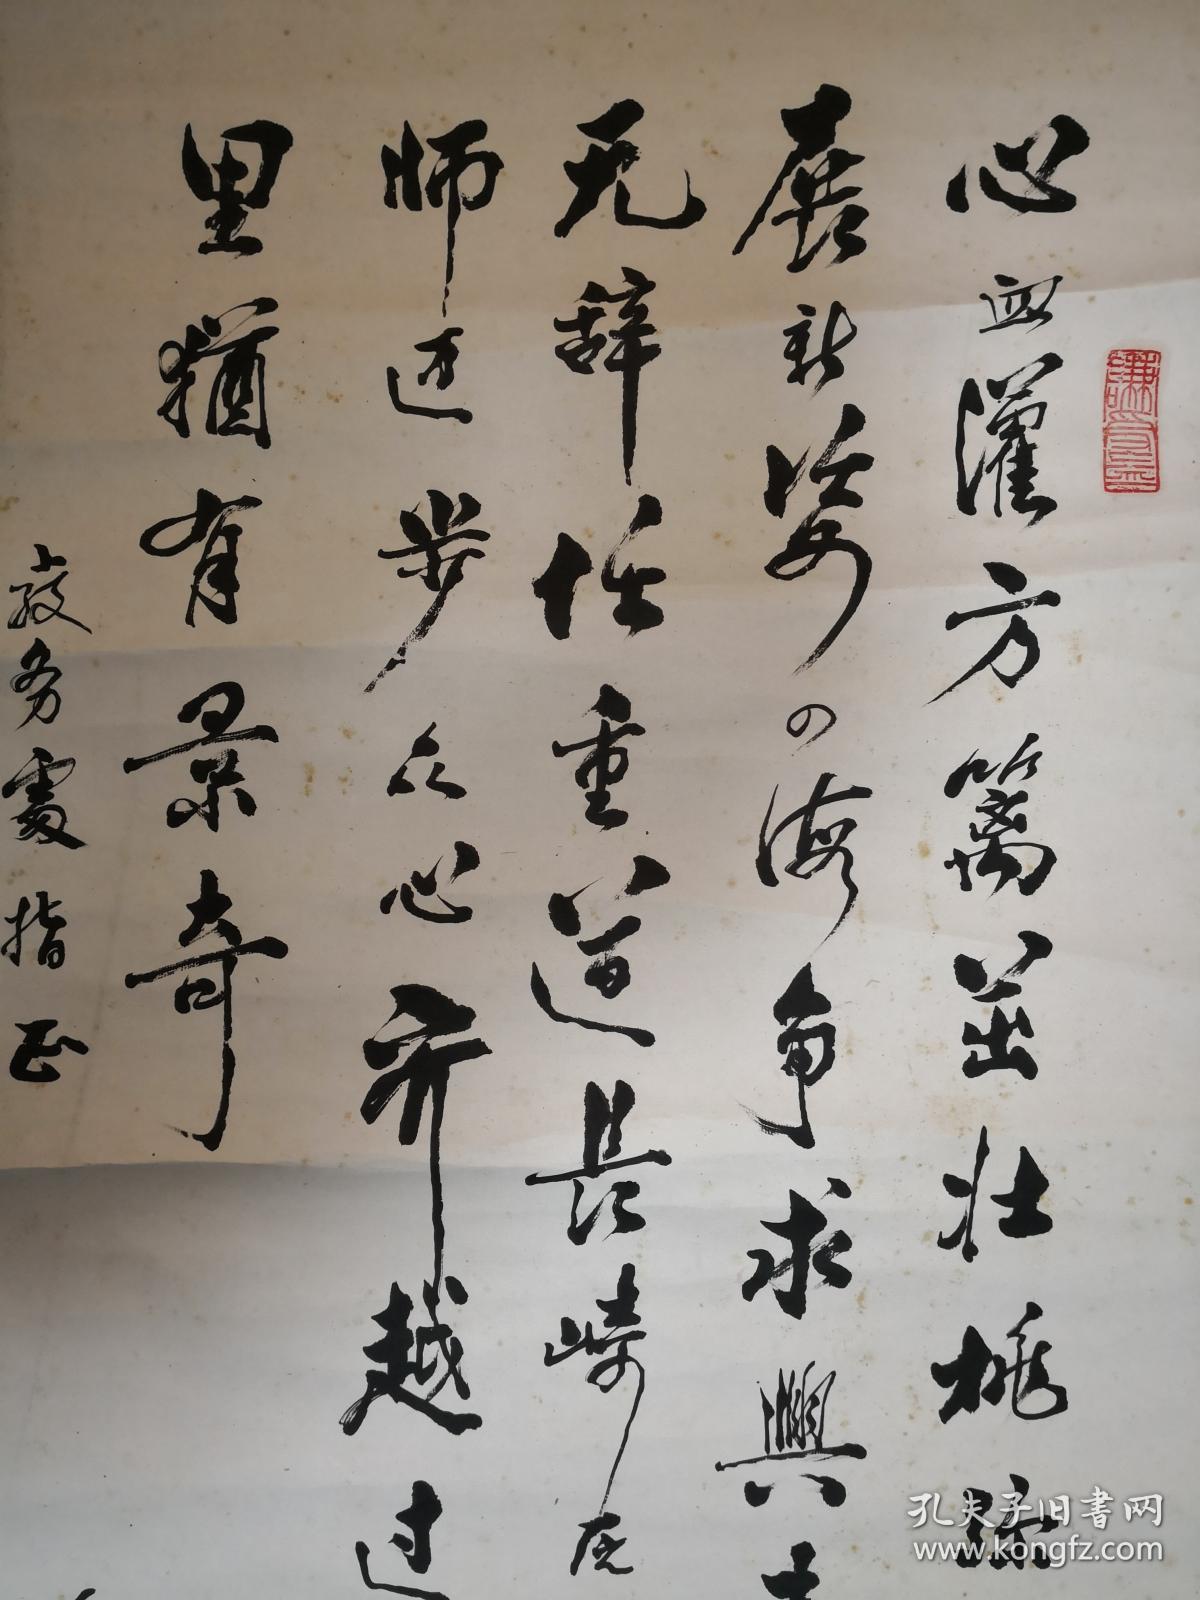 心血灌方篱茁壮桃
展新姿四海争求兴
无辞任重道长崎
师迈步众心齐越过
里犹有景奇
教务处指正
孔夫子旧书网
www.kongfz.com